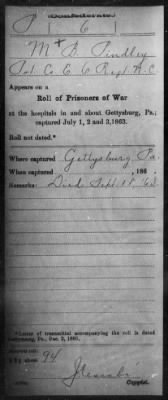 (Confederate.)
P 6
Mt B Pindley
Pvt. Co E. 6 Regt. N.C.
Appears on a
Roll of Prisoners of War
at the hospitals in and about Gettysburg, Pa.;
captured July 1, 2 and 3, 1863.
Roll not dated.
Where captured Gettysburg Pa.
When captured , 186 .
Remarks: Died Sept. 18, '63.
Letter of transmittal accompanying the roll is dated
Gettysburg, Pa., Jan. 2, 1865.
94
Copyist.